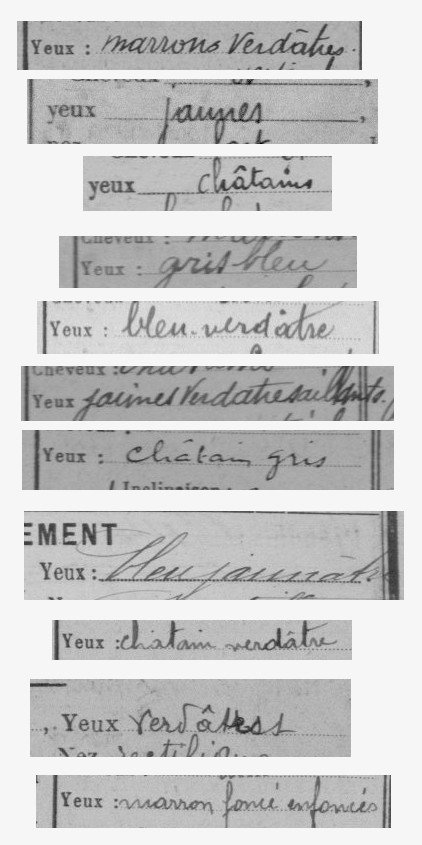 Yeux : marrons Verdâtres.
yeux jaunes,
yeux châtains
Cheveux :
Yeux : gris bleu
Yeux : bleu-verdâtre
Cheveux :
Yeux jaunes Verdatres saillants.
Yeux : châtain gris
Inclinaison :
EMENT
Yeux : bleu jaunâtre
Yeux : chatain verdâtre
, Yeux Verdâtres
Nez rectiligne
Yeux : marron foncé enfoncés